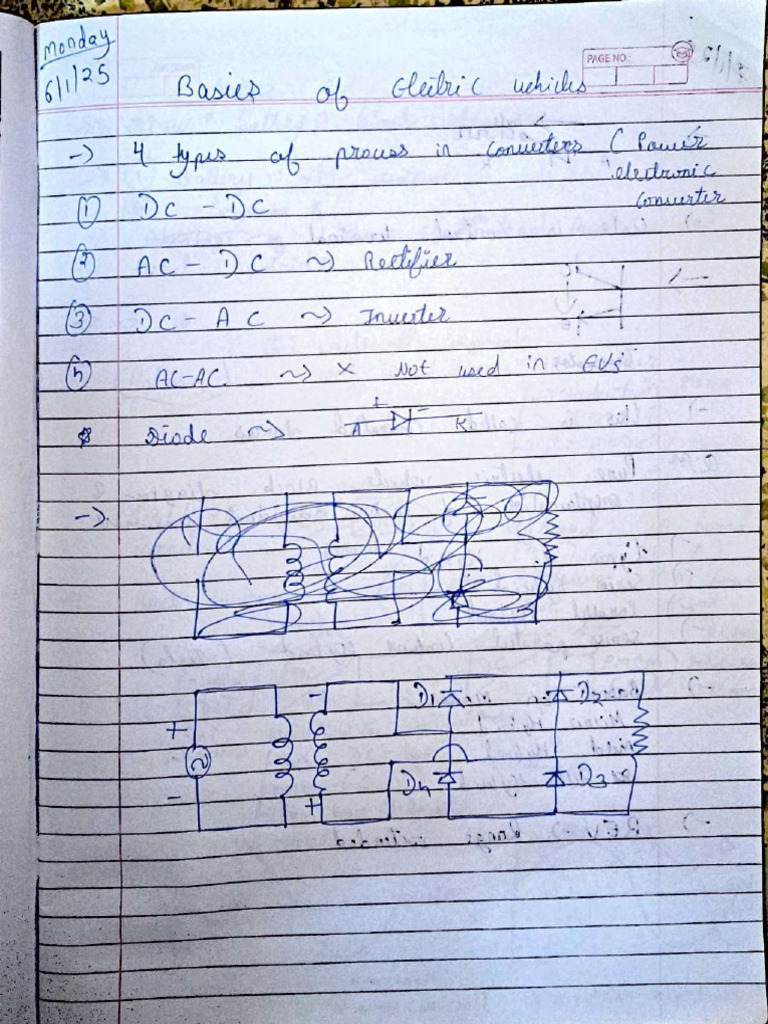 Monday
6/1/25
PAGE NO.:
Basics of Electric vehicles
-> 4 types of process in converters ( Power
electronic
converter
① DC - DC
② AC - DC ~> Rectifier
③ DC - AC ~> Inverter
④ AC-AC ~> × Not used in EVs
Diode ~> A + - K
->
+ - D1 D2
~
D4 D3
- +